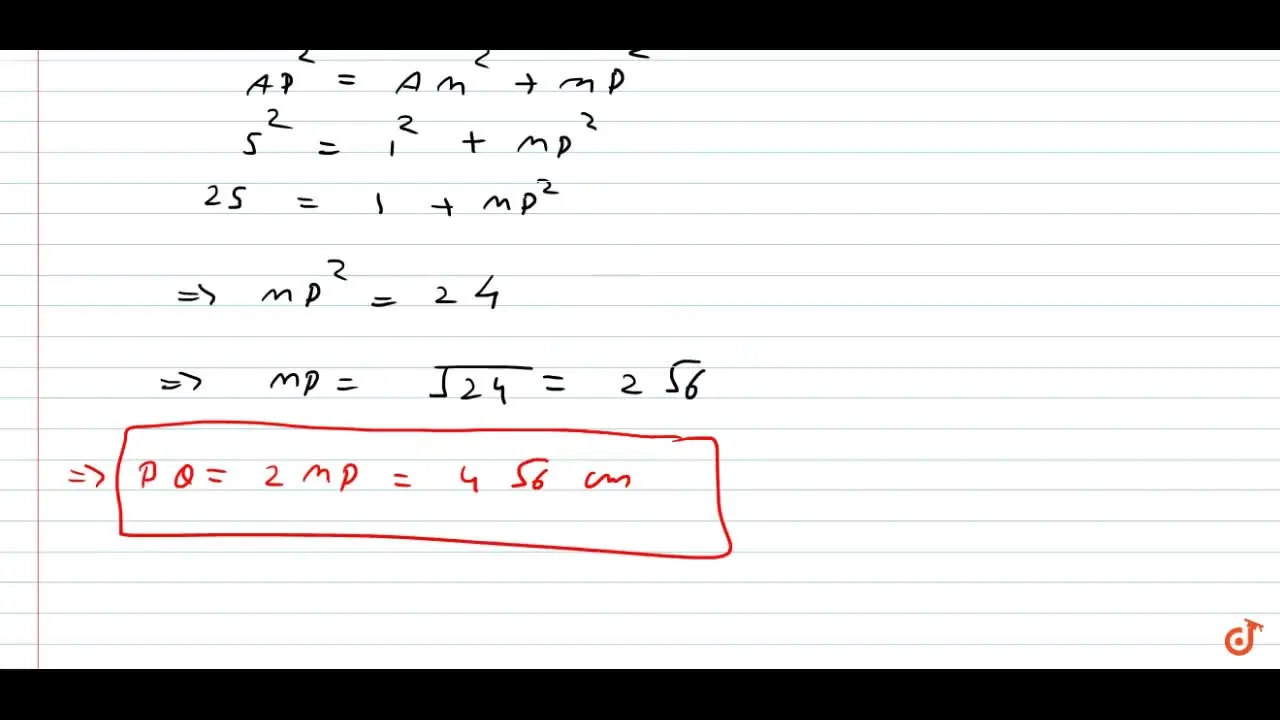 AP² = AM² + MP²
5² = 1² + MP²
25 = 1 + MP²
=> MP² = 24
=> MP = √24 = 2√6
=> PQ = 2 MP = 4√6 cm